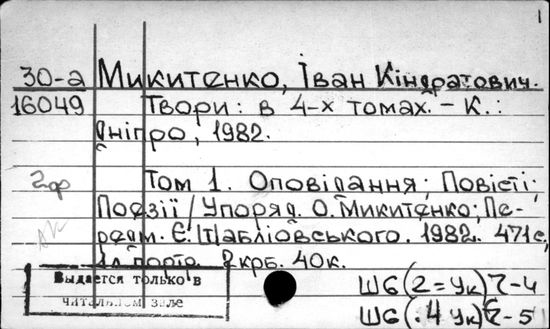 1
30-а Микитенко, Іван Кіндратович.
16049 Твори: в 4-х томах. – К.:
Дніпро, 1982.
2ф Том 1. Оповідання; Повісті;
Поезії / Упоряд. О. Микитенко; Пе-
редм. Є. Шабліовського. 1982. 471 с,
1л портр. 2крб. 40к.
Выдается только в
читальном зале
Ш6(2=Ук)7-4
Ш6(.4Ук)7-5